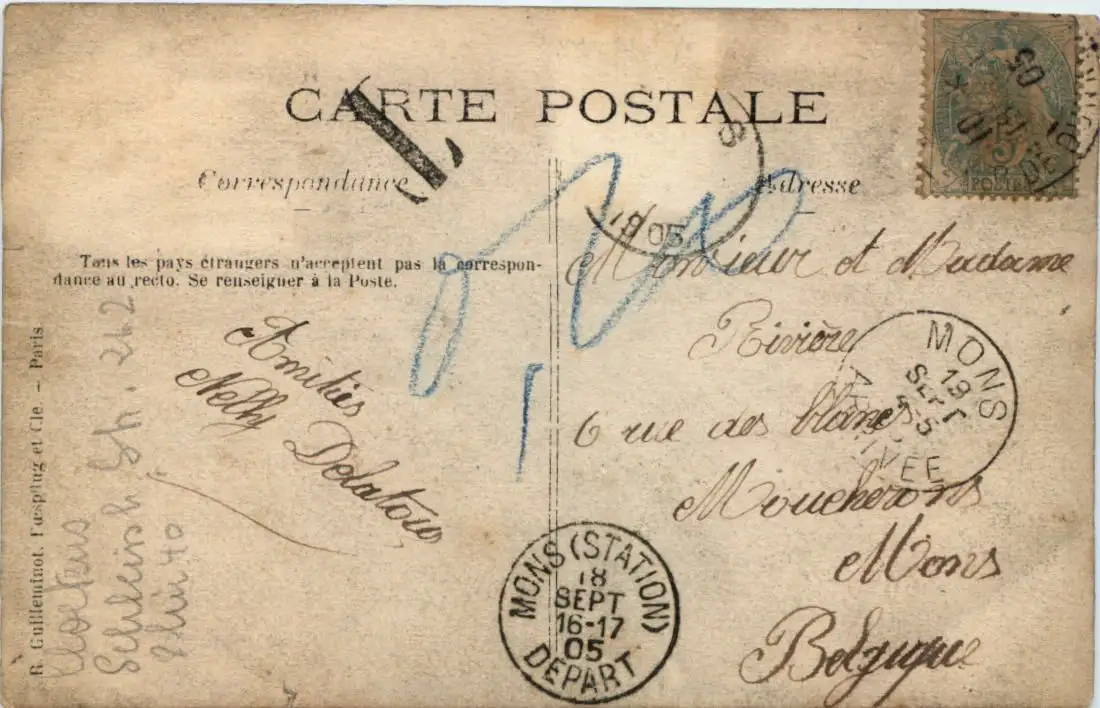 CARTE POSTALE
Correspondance
Adresse
Tous les pays étrangers n'acceptent pas la correspon-
dance au recto. Se renseigner à la Poste.
Amitiés
Nelly Delatour
Monsieur et Madame
Rivière
6 rue des blancs
Moucherons
Mons
Belgique
MONS
19
SEPT
ARRIVÉE
MONS (STATION)
18
SEPT
16-17
05
DEPART
1905
T
5
POSTE
05
R. Guilleminot, Bœspflug et Cie. — Paris